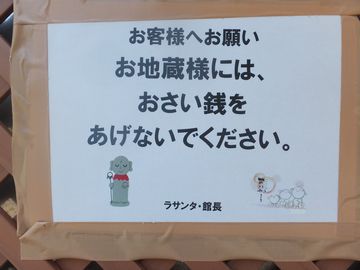 お客様へお願い
お地蔵様には、
おさい銭を
あげないでください。
ラサンタ・館長